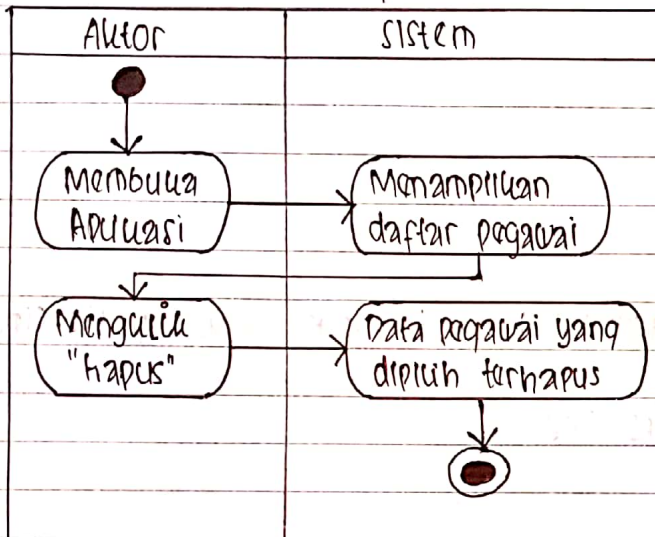 Aktor
Sistem
Membuka
Aplikasi
Menampilkan
daftar pegawai
Mengklik
"Hapus"
Data pegawai yang
dipilih terhapus